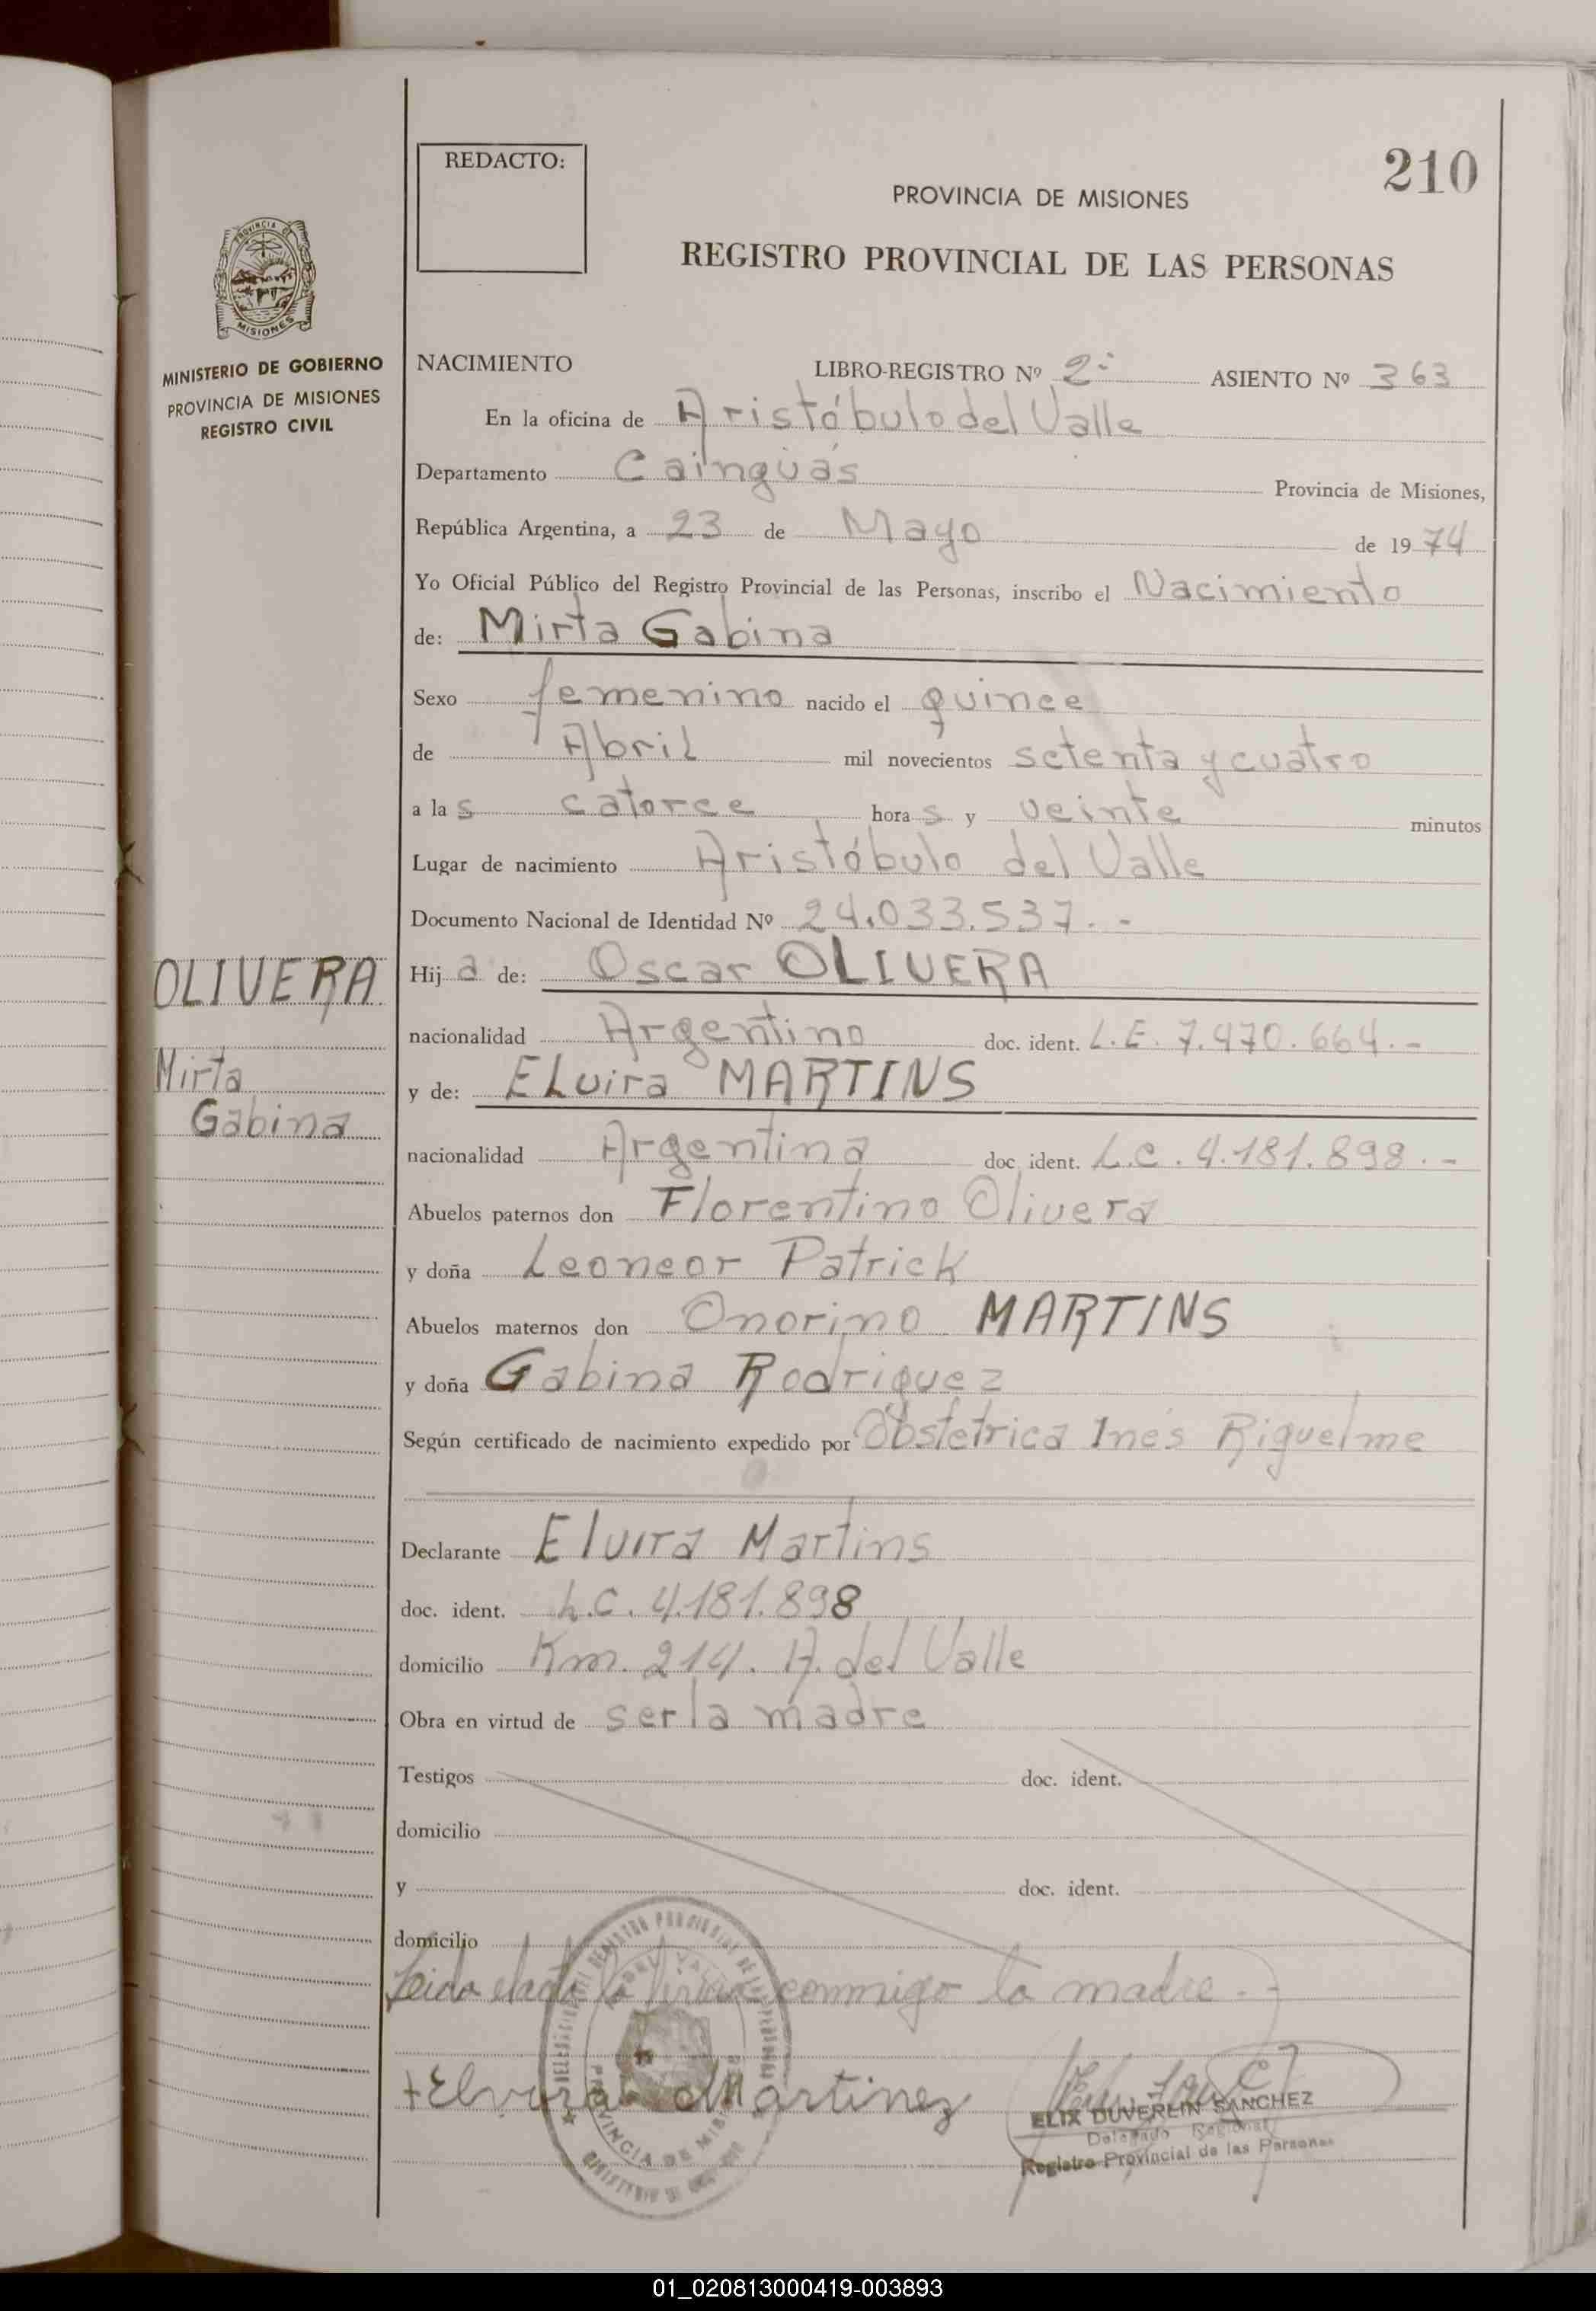 210
REDACTO:
PROVINCIA DE MISIONES
REGISTRO PROVINCIAL DE LAS PERSONAS
PROVINCIA DE
MISIONES
MINISTERIO DE GOBIERNO
PROVINCIA DE MISIONES
REGISTRO CIVIL
NACIMIENTO LIBRO-REGISTRO Nº 2º ASIENTO Nº 363
En la oficina de Aristóbulo del Valle
Departamento Cainguás Provincia de Misiones,
República Argentina, a 23 de Mayo de 1974
Yo Oficial Público del Registro Provincial de las Personas, inscribo el Nacimiento
de: Mirta Gabina
Sexo femenino nacido el quince
de Abril mil novecientos setenta y cuatro
a las catorce horas y veinte minutos
Lugar de nacimiento Aristóbulo del Valle
Documento Nacional de Identidad Nº 24.033.537.-
OLIVERA
Mirta
Gabina
Hija de: Oscar OLIVERA
nacionalidad Argentino doc. ident. L.E. 7.470.664.-
y de: ELvira MARTINS
nacionalidad Argentina doc. ident. L.C. 4.181.898.-
Abuelos paternos don Florentino Olivera
y doña Leoneor Patrick
Abuelos maternos don Onorino MARTINS
y doña Gabina Rodriguez
Según certificado de nacimiento expedido por Obstetrica Inés Riguelme
Declarante Elvira Martins
doc. ident. L.C. 4.181.898
domicilio Km. 214. A. del Valle
Obra en virtud de ser la madre
Testigos doc. ident.
domicilio
y doc. ident.
domicilio
Leida el acta la firma conmigo la madre.-
+Elvira Martinez
ELIX DUVERLIN SANCHEZ
Delegado Regional
Registro Provincial de las Personas
01_020813000419-003893